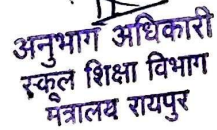 अनुभाग अधिकारी
स्कूल शिक्षा विभाग
मंत्रालय रायपुर